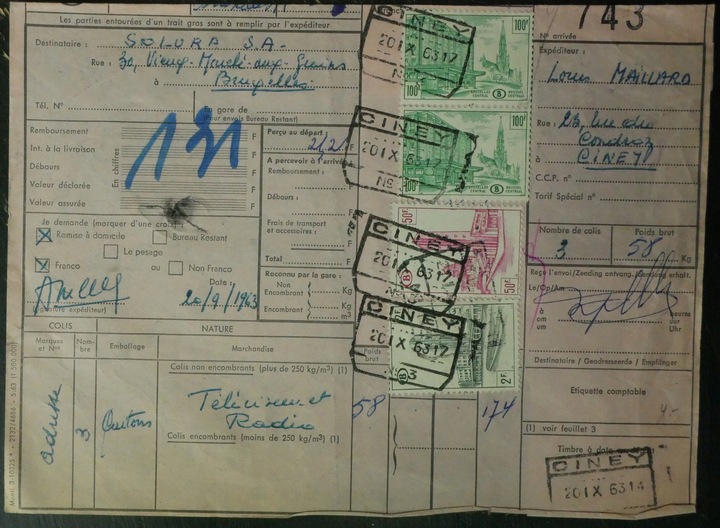 743
Les parties entourées d'un trait gras sont à remplir par l'expéditeur
N° arrivée
Destinataire : SOLORA S.A.
Rue : 30, Vieux-Marché-aux-Grains
à Bruxelles
Tél. N°
en gare de
(pour envois Bureau Restant)
Expéditeur :
Louis MAILLARD
Rue : 23, Rue du
Condroz
à CINEY
C.C.P. n°
Tarif Spécial n°
Remboursement F
Int. à la livraison F
Débours F
Valeur déclarée F
Valeur assurée F
En chiffres
131
Perçu au départ :
212 F
A percevoir à l'arrivée :
Remboursement :
F
Débours :
F
Frais de transport
et accessoires : F
Total F
Reconnu par la gare :
Non
Encombrant Kg
Encombrant Kg
m³
Je demande (marquer d'une croix)
X Remise à domicile Bureau Restant
Le pesage
X Franco ou Non Franco
Date :
20/9/1963
(Signature expéditeur)
Nombre de colis Poids brut
3 58 Kg
Reçu l'envoi/Zending ontvang.
Le/Op/Am
à heures
om uur
um Uhr
Destinataire / Geadresseerde / Empfänger
Etiquette comptable
4-
(1) voir feuillet 3
Timbre à date
CINEY
20 IX 63 14
COLIS NATURE
Marques
et Nos
Nom-
bre
Emballage Marchandise Poids
brut
Colis non encombrants (plus de 250 kg/m³) (1)
adresse 3 Cartons Téléviseur et
Radio 58 174
Colis encombrants (moins de 250 kg/m³) (1)
100F
BRUXELLES BRUSSEL
CENTRAL B CENTRAAL
100F
100F
BRUXELLES BRUSSEL
CENTRAL B CENTRAAL
100F
50F
50F
B
2F
B
CINEY
20 IX 63 17
CINEY
20 IX 63 17
CINEY
20 IX 63 17
CINEY
20 IX 63 17
N° 3